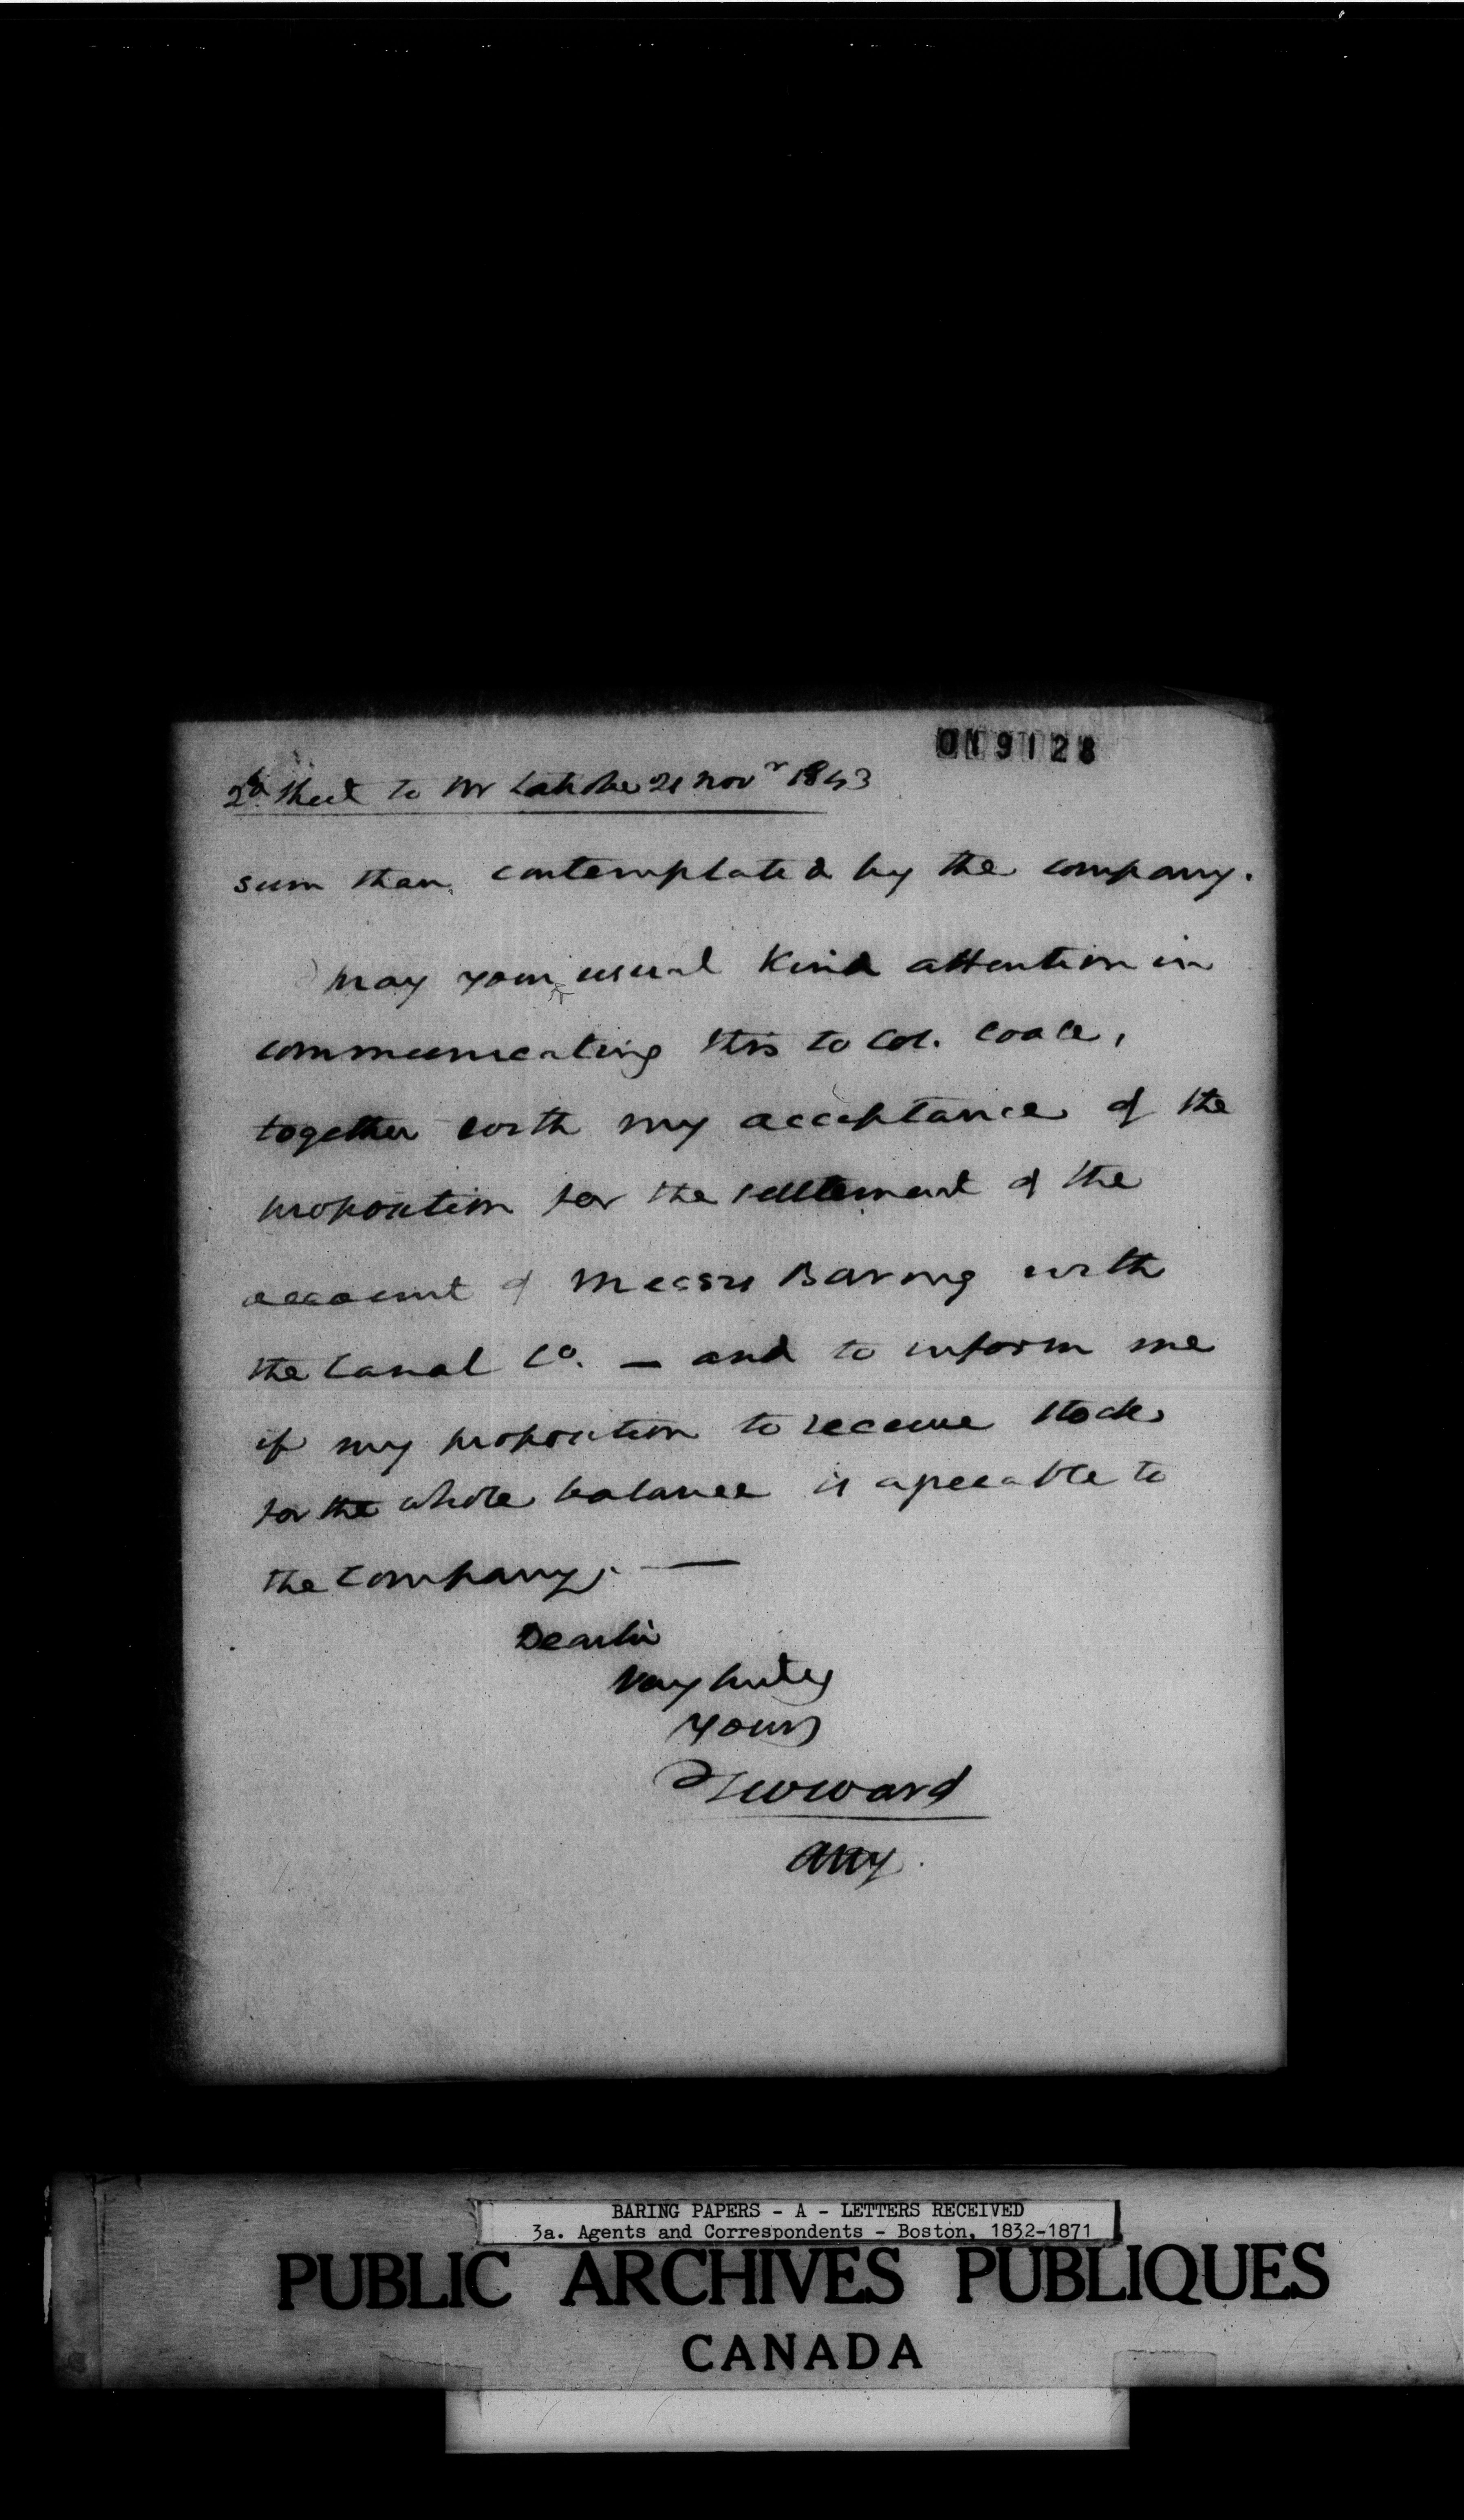 019128
2d Sheet to Mr Latrobe 21 Novr 1843
sum than contemplated by the company.
May your usual kind attention in
communicating this to Col. Coale,
together with my acceptance of the
proposition for the settlement of the
account of Messrs Baring with
the Canal Co. — and to inform me
if my proposition to receive Stock
for the whole balance is agreeable to
the Company. —
Dear Sir
Very truly
Yours
TWWard
Atty.
BARING PAPERS - A - LETTERS RECEIVED
3a. Agents and Correspondents - Boston, 1832-1871
PUBLIC ARCHIVES PUBLIQUES
CANADA